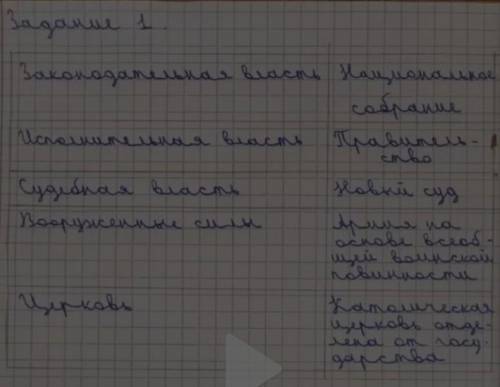 Задание 1.
Законодательная власть Национальное
собрание
Исполнительная власть Правитель-
ство
Судебная власть Новый суд
Вооруженные силы Армия на
основе всеоб-
щей воинской
повинности
Церковь Католическая
церковь отде-
лена от госу-
дарства